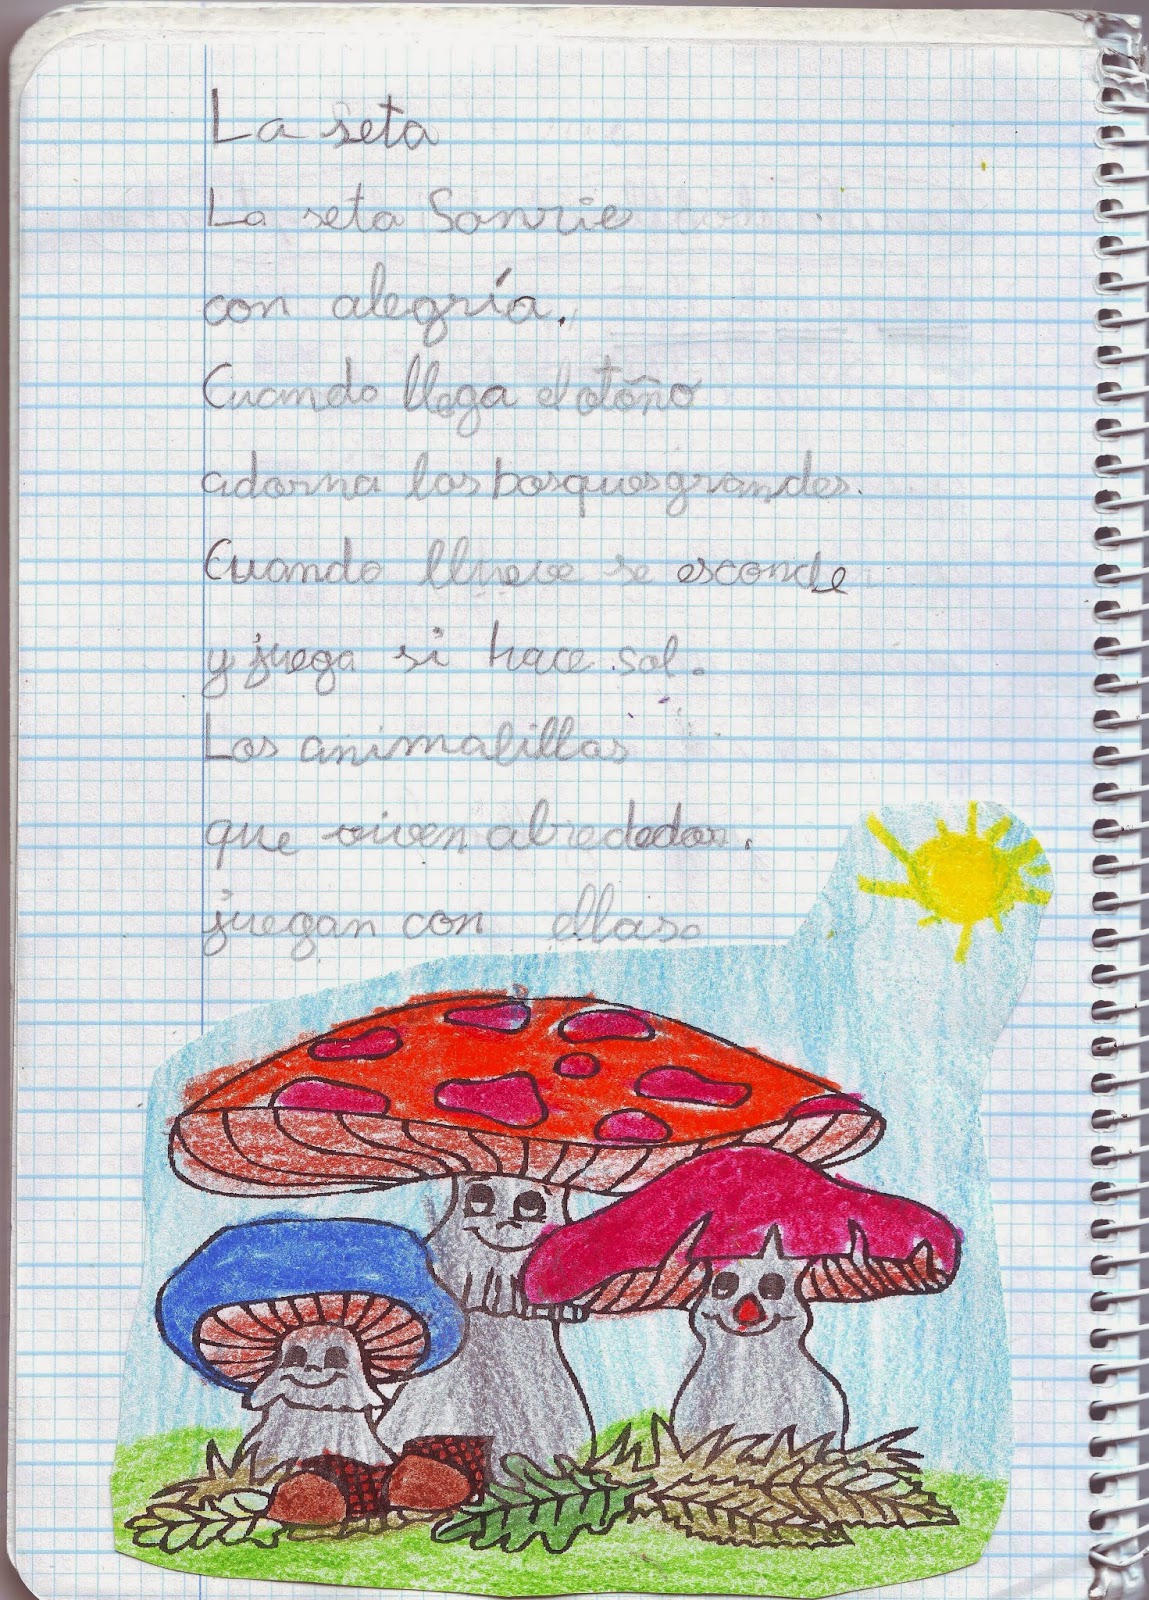 La seta
La seta Sonrie
con alegría.
Cuando llega el otoño
adorna los bosques grandes.
Cuando llueve se esconde
y juega si hace sol.
Los animalillos
que viven alrededor.
juegan con ellas.